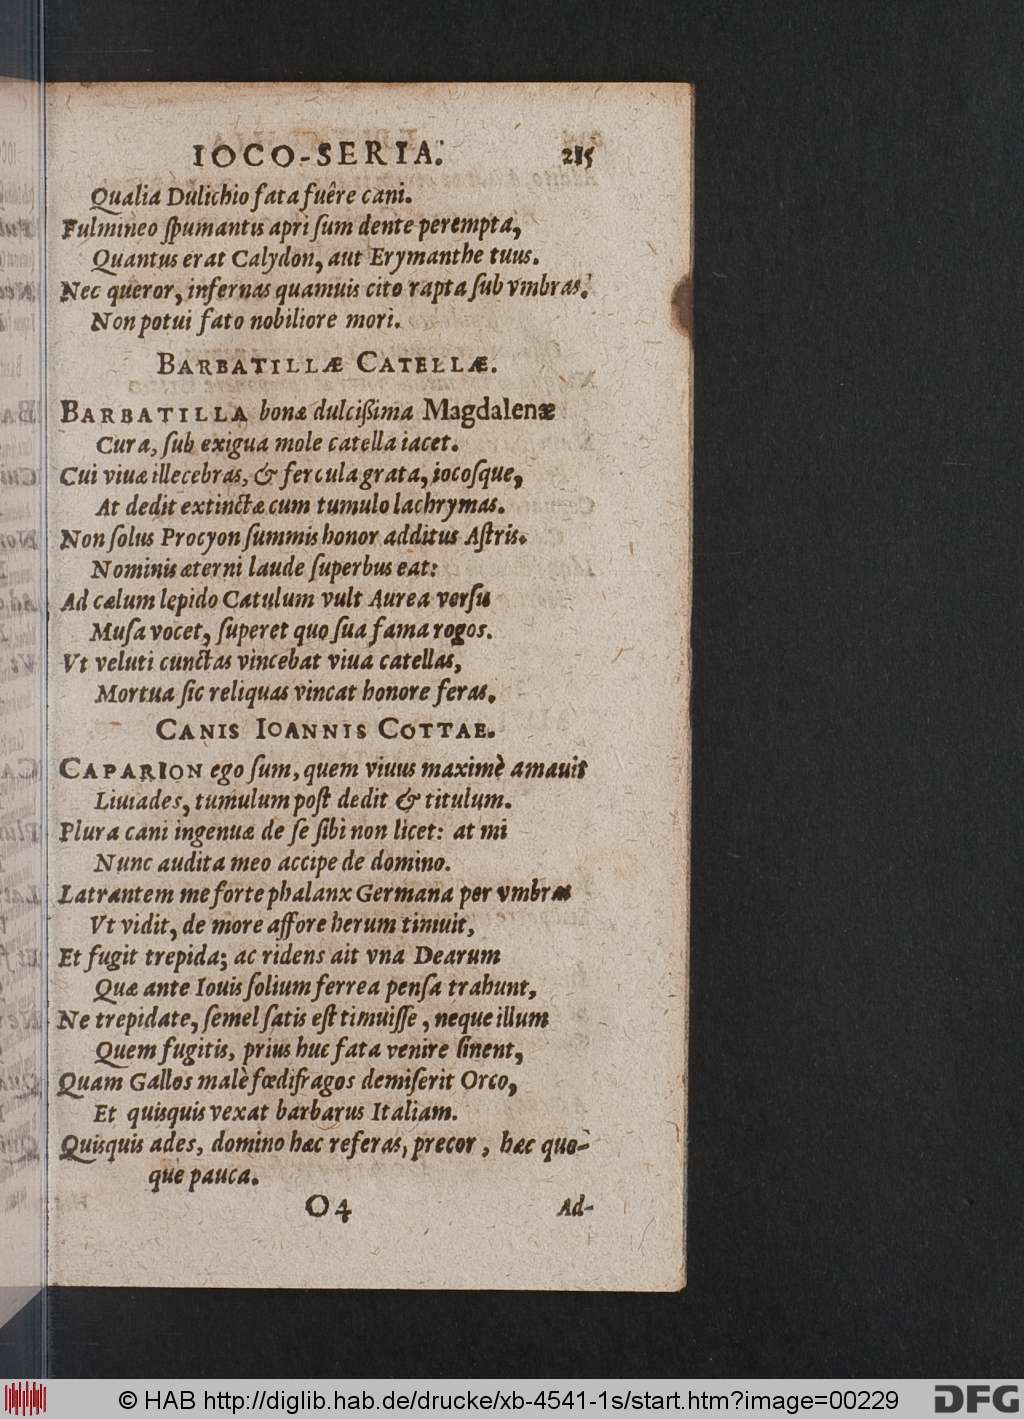 IOCO-SERIA. 215
Qualia Dulichio fata fuêre cani.
Fulmineo ſpumantis apri ſum dente perempta,
Quantus erat Calydon, aut Erymanthe tuus.
Nec queror, infernas quamuis cito rapta ſub vmbras.
Non potui fato nobiliore mori.
BARBATILLÆ CATELLÆ.
BARBATILLA bonæ dulciſſima Magdalenæ
Cura, ſub exigua mole catella iacet.
Cui viuæ illecebras, & fercula grata, iocoſque,
At dedit extinctæ cum tumulo lachrymas.
Non ſolus Procyon ſummis honor additus Aſtris.
Nominis æterni laude ſuperbus eat:
Ad cælum lepido Catulum vult Aurea verſu
Muſa vocet, ſuperet quo ſua fama rogos.
Vt veluti cunctas vincebat viua catellas,
Mortua ſic reliquas vincat honore feras.
CANIS IOANNIS COTTAE.
CAPARION ego ſum, quem viuus maximè amauit
Liuiades, tumulum poſt dedit & titulum.
Plura cani ingenuæ de ſe ſibi non licet: at mi
Nunc audita meo accipe de domino.
Latrantem me forte phalanx Germana per vmbras
Vt vidit, de more affore herum timuit,
Et fugit trepida; ac ridens ait vna Dearum
Quæ ante Iouis ſolium ferrea penſa trahunt,
Ne trepidate, ſemel ſatis eſt timuiſſe, neque illum
Quem fugitis, prius huc fata venire ſinent,
Quam Gallos malè fœdifragos demiſerit Orco,
Et quisquis vexat barbarus Italiam.
Quisquis ades, domino hæc referas, precor, hæc quo-
que pauca.
O4 Ad-
© HAB http://diglib.hab.de/drucke/xb-4541-1s/start.htm?image=00229 DFG